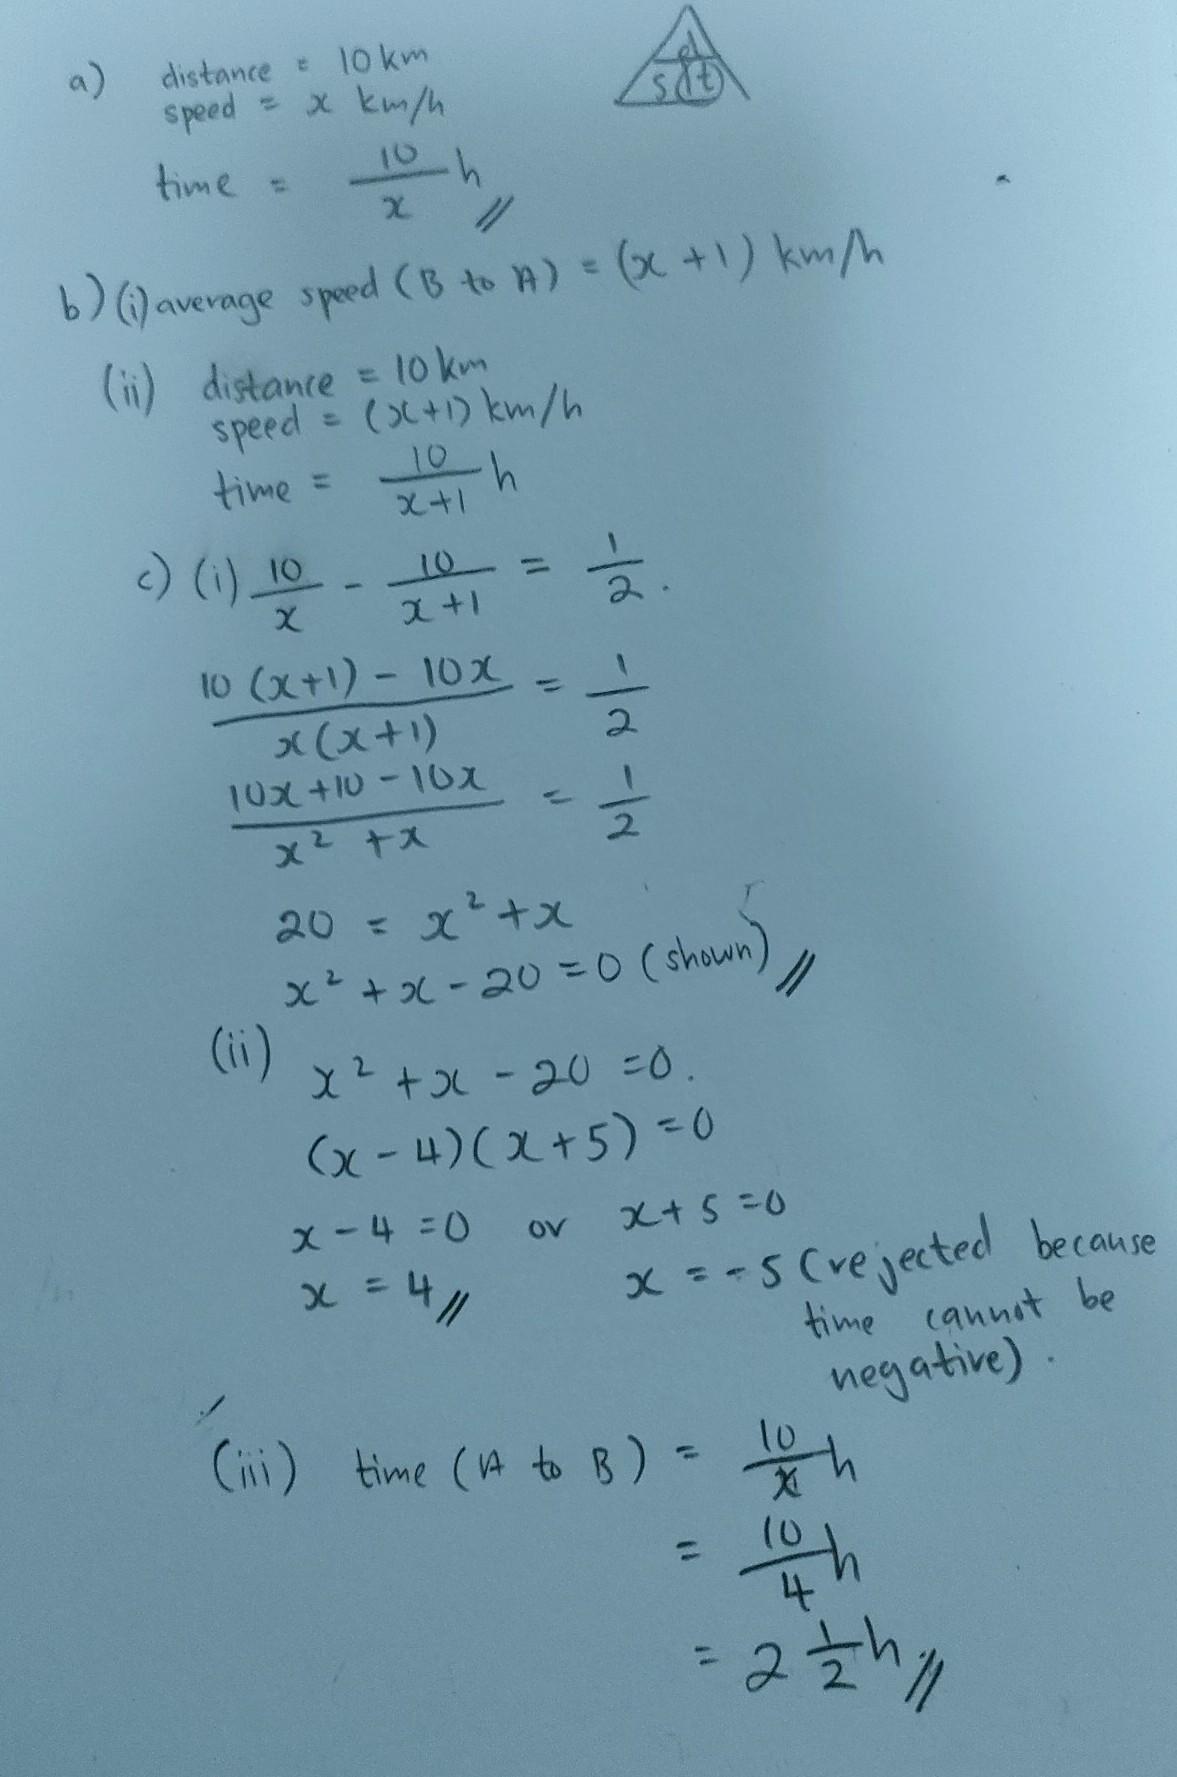 a) distance = 10 km
speed = x km/h
d
s t
time = 10/x h //
b) (i) average speed (B to A) = (x + 1) km/h
(ii) distance = 10 km
speed = (x+1) km/h
time = 10/(x+1) h
c) (i) 10/x - 10/(x+1) = 1/2.
(10(x+1) - 10x)/(x(x+1)) = 1/2
(10x + 10 - 10x)/(x² + x) = 1/2
20 = x² + x
x² + x - 20 = 0 (shown) //
(ii) x² + x - 20 = 0.
(x - 4)(x + 5) = 0
x - 4 = 0 or x + 5 = 0
x = 4 // x = -5 (rejected because
time cannot be
negative).
(iii) time (A to B) = 10/x h
= 10/4 h
= 2 1/2 h //